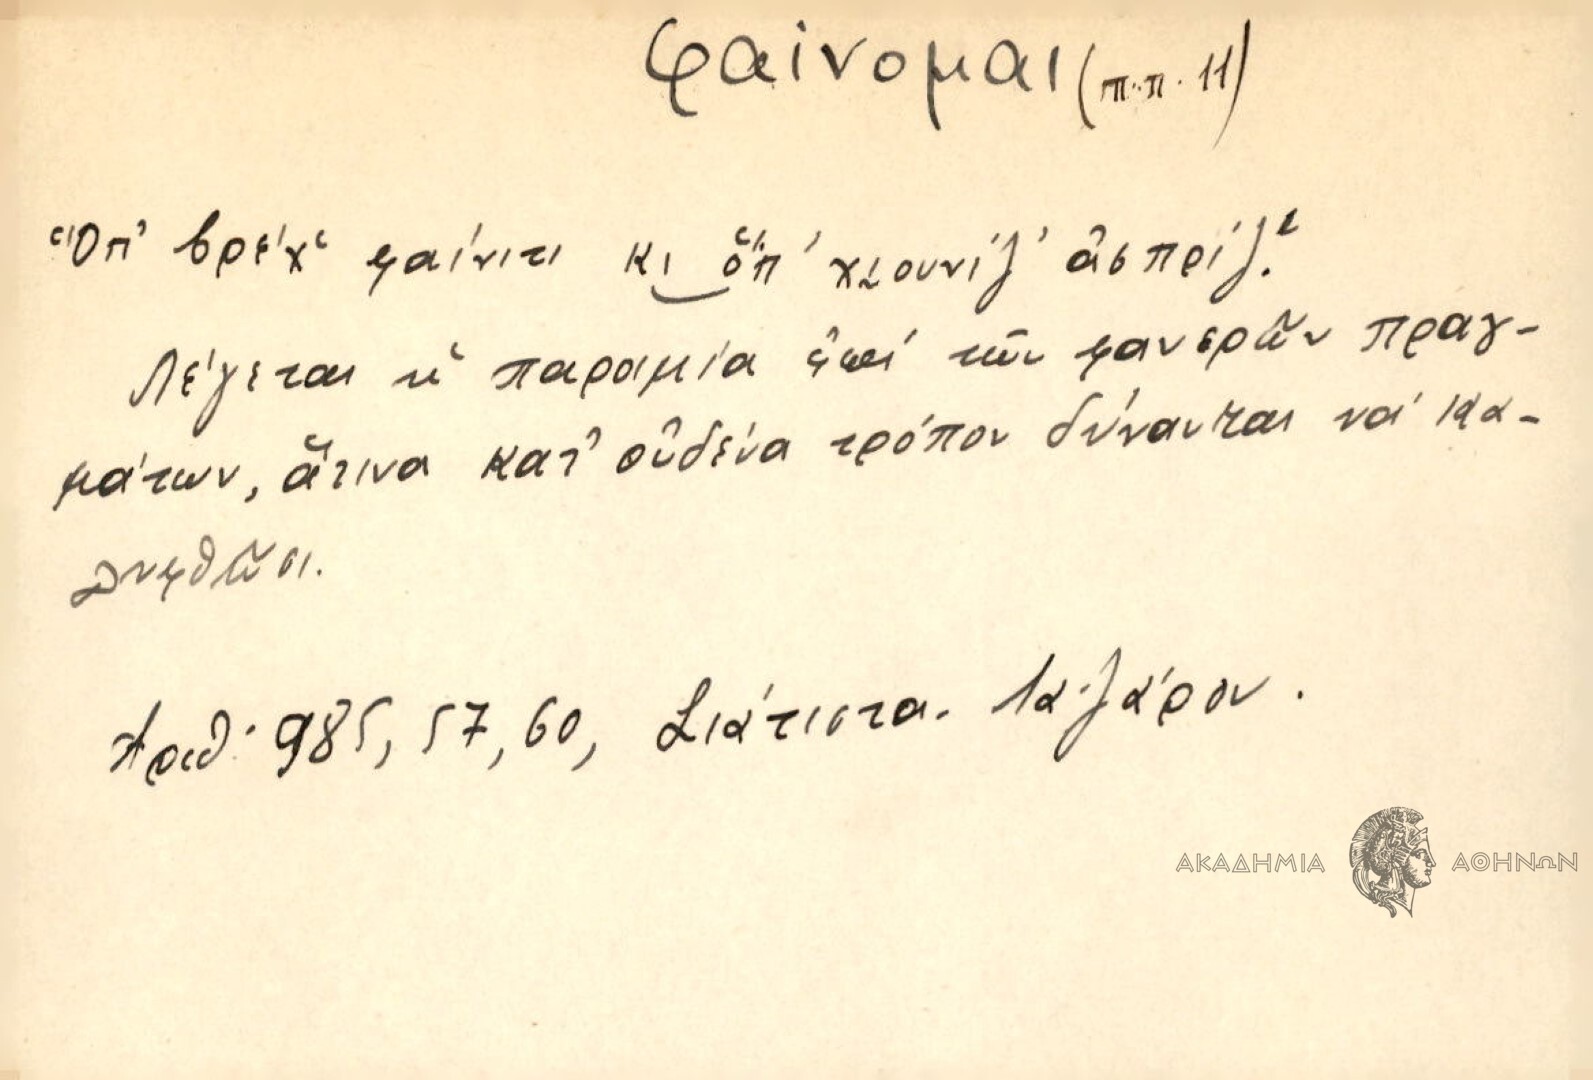 φαίνομαι (π.π. 11)
Ὅπ' βρέχ' φαίνιτι κι ὅπ' χιουνίζ' ἀσπρίζ'.
Λέγεται ἡ παροιμία ἐπί τῶν φανερῶν πραγ-
μάτων, ἅτινα κατ' οὐδένα τρόπον δύνανται νά κα-
λυφθῶσι.
Ἀριθ. 985, 57, 60, Σιάτιστα. Λαζάρου.
ΑΚΑΔΗΜΙΑ ΑΘΗΝΩΝ